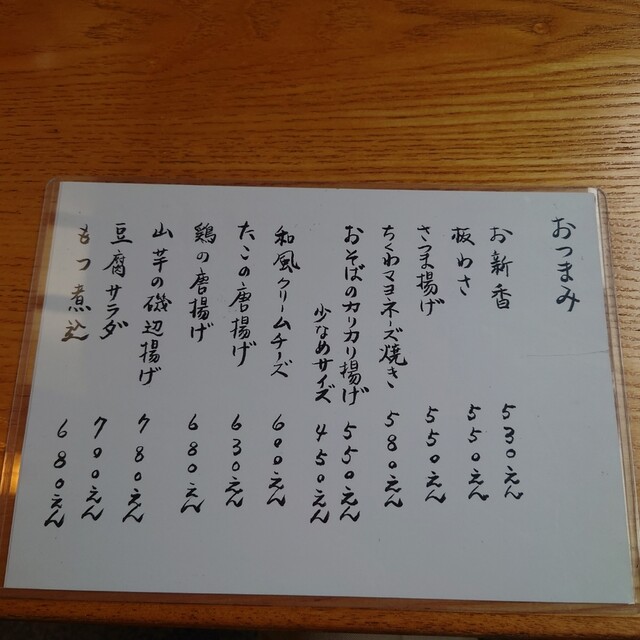 おつまみ
お新香 530えん
板わさ 550えん
さつま揚げ 550えん
ちくわマヨネーズ焼き 580えん
おそばのカリカリ揚げ 550えん
少なめサイズ 450えん
和風クリームチーズ 600えん
たこの唐揚げ 630えん
鶏の唐揚げ 680えん
山芋の磯辺揚げ 780えん
豆腐サラダ 700えん
もつ煮込 680えん